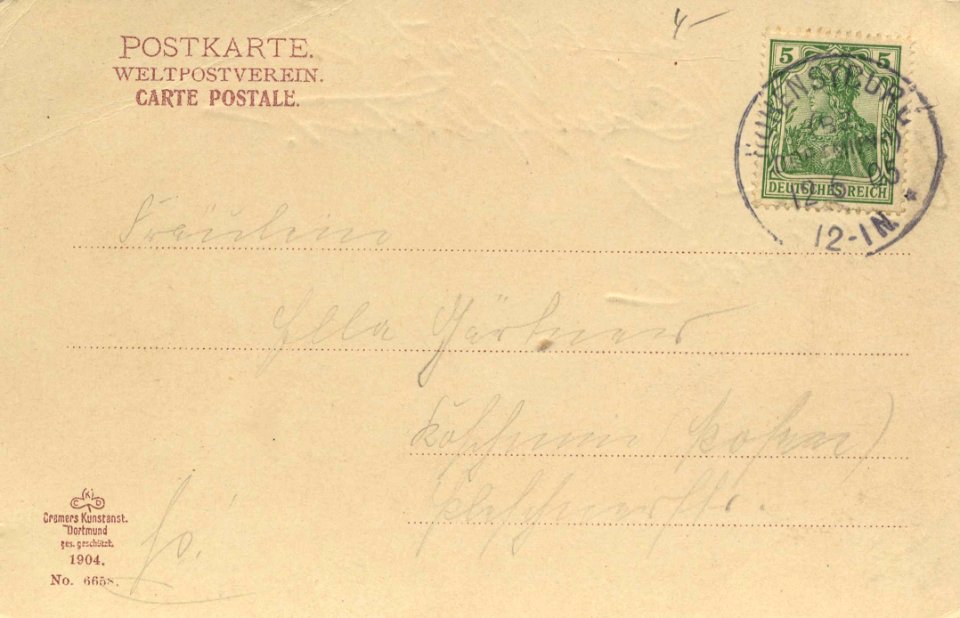 4–
POSTKARTE.
WELTPOSTVEREIN.
CARTE POSTALE.
5 5
DEUTSCHES REICH
HOHENSYBURG
12 5 05
12-1N.
Fräulein
Ella Gärtner
CKD
Cramers Kunstanst.
Dortmund
ges. geschützt.
1904.
No. 6658.